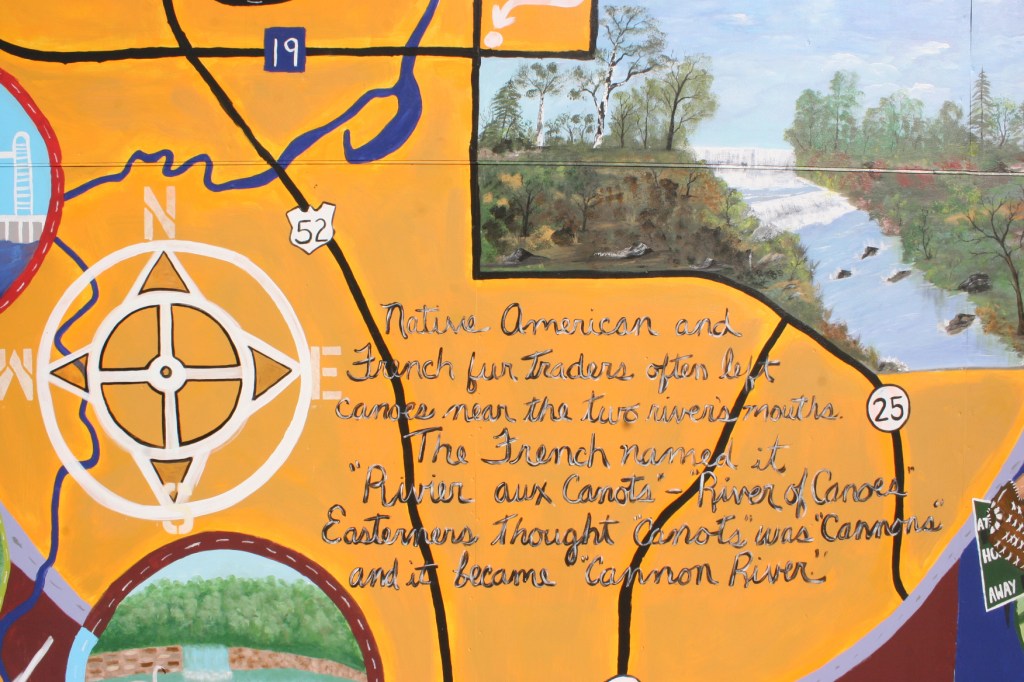 19
N
52
W
E
S
Native American and
French fur Traders often left
Canoes near the two river's mouths.
The French named it
"Rivier aux Canots" - "River of Canoes"
Easterners thought "Canots" was "Cannons"
and it became "Cannon River"
25
AT
HO
AWAY